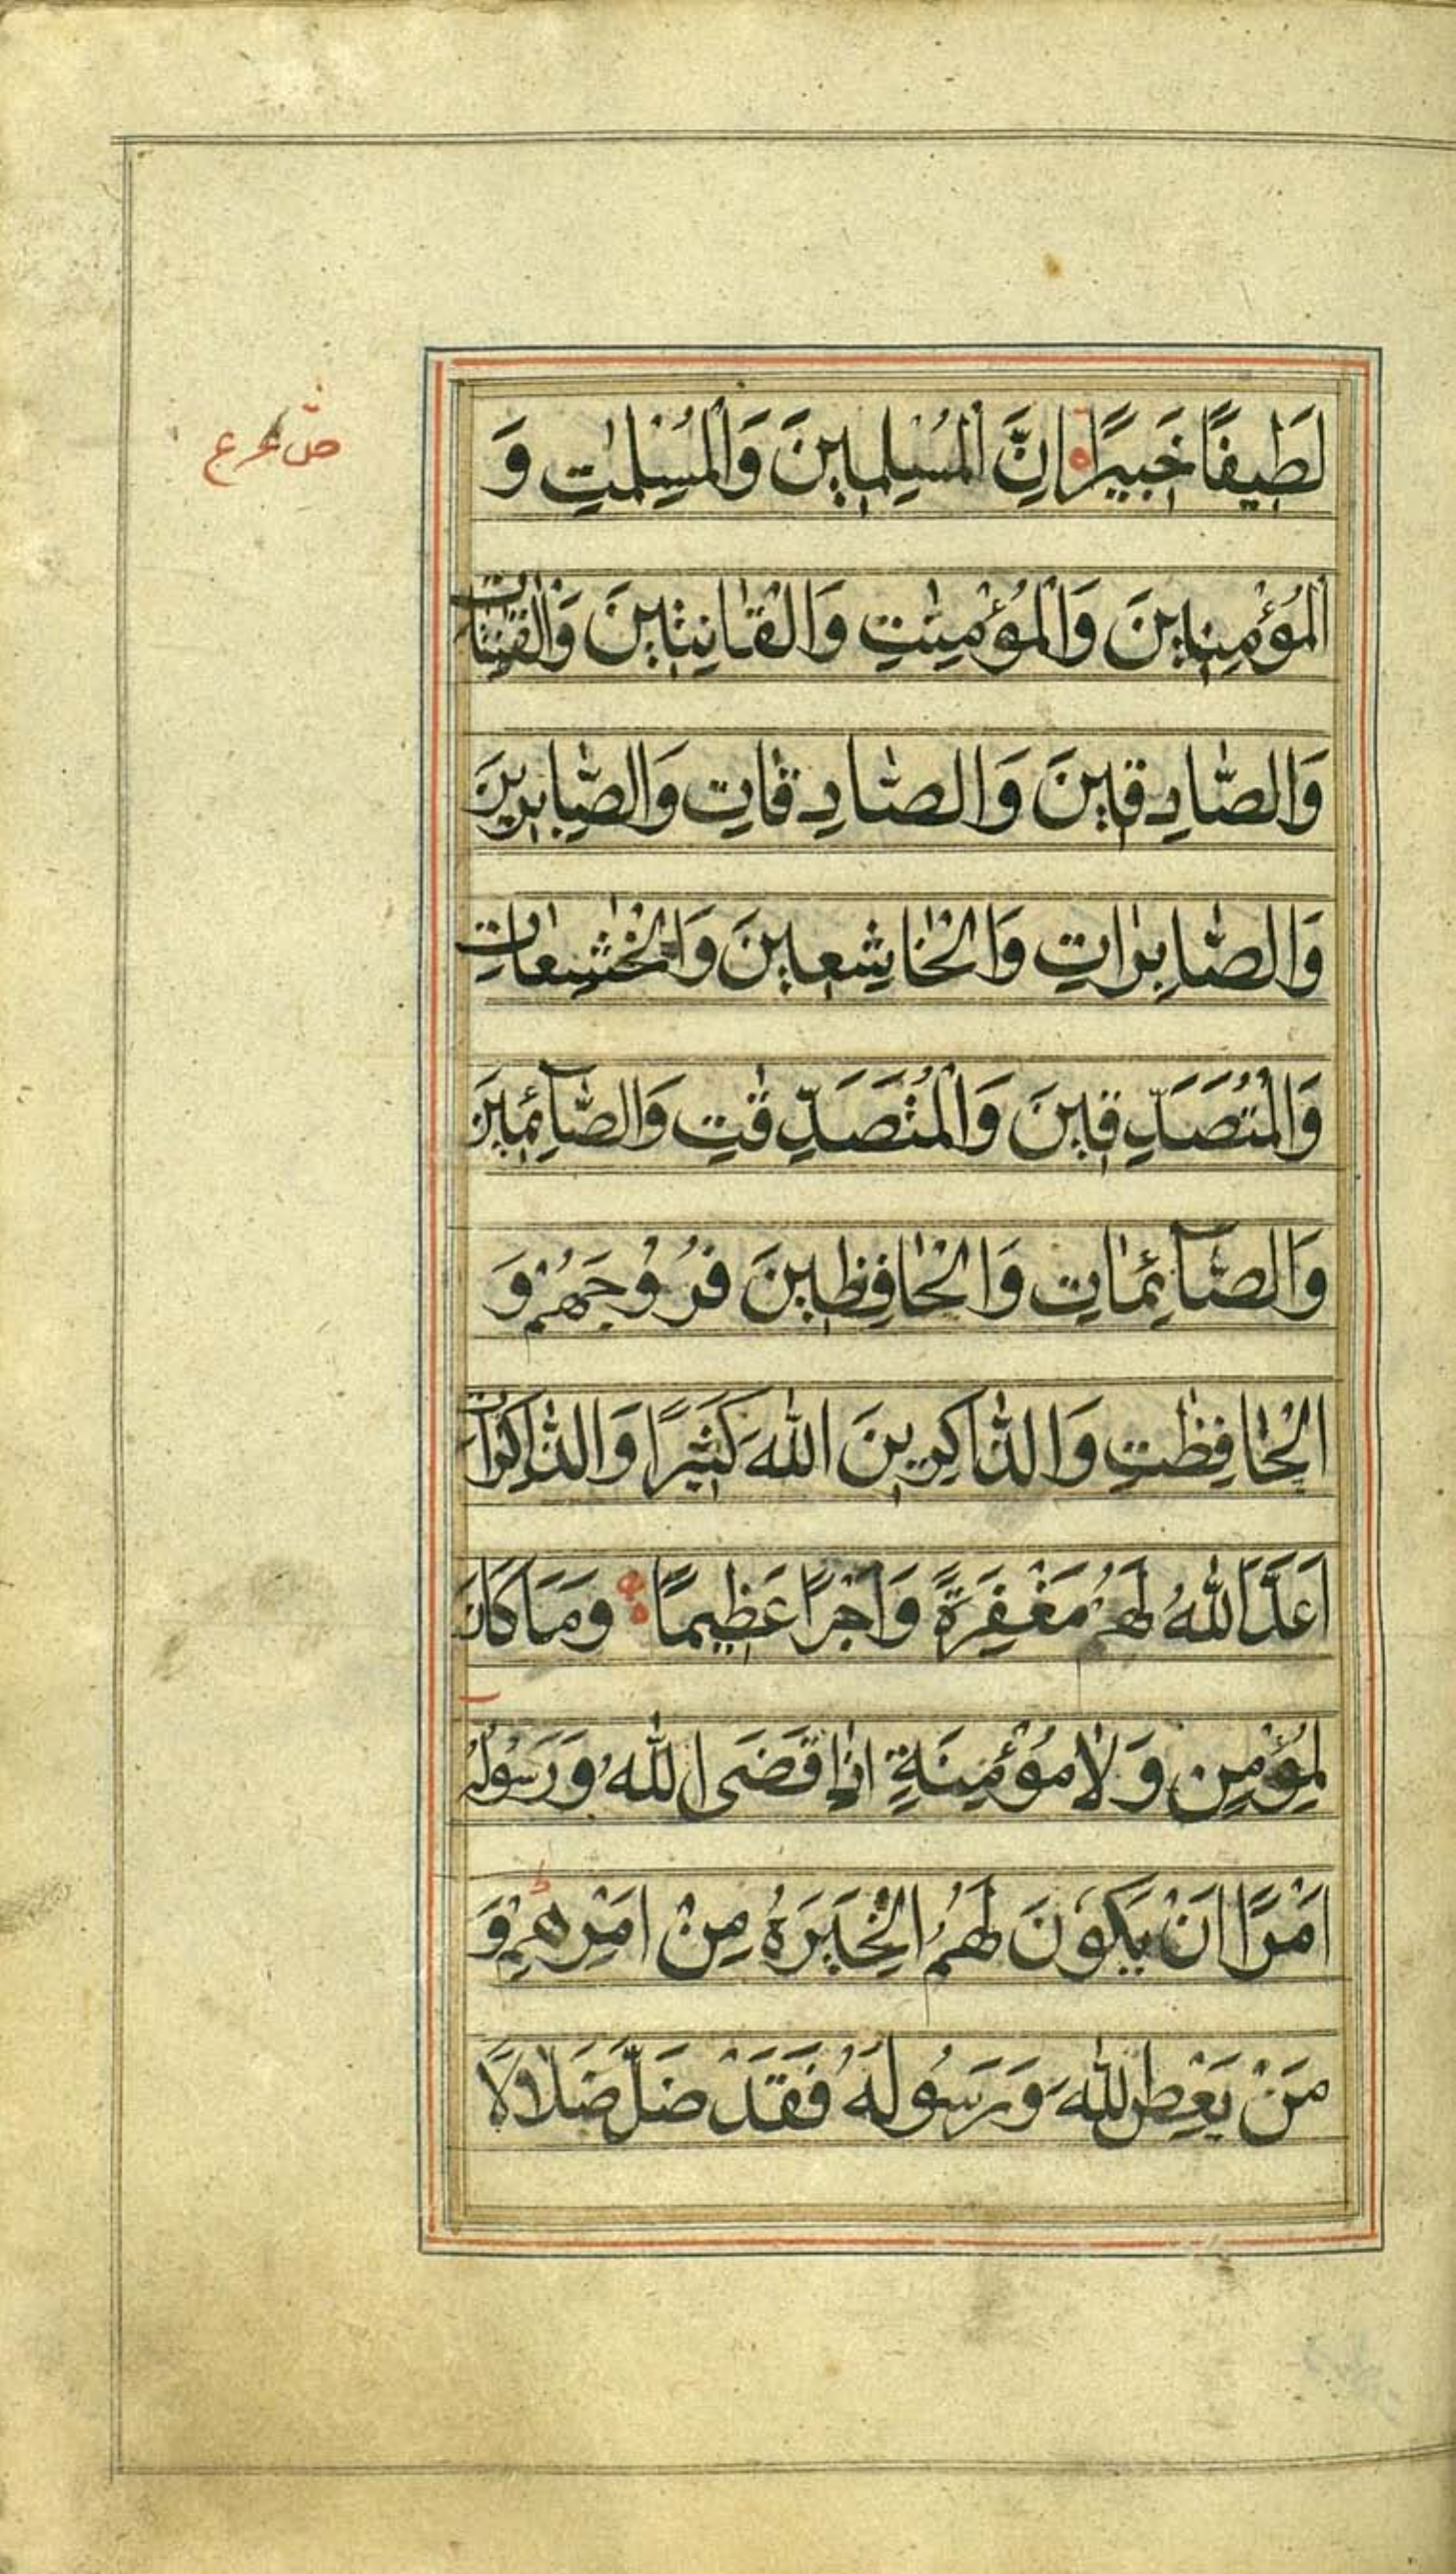 لَطِيفًا خَبِيرًا اِنَّ الْمُسْلِمِينَ وَالْمُسْلِمٰتِ وَ
الْمُؤْمِنِينَ وَالْمُؤْمِنٰتِ وَالْقَانِتِينَ وَالْقٰنِتَاتِ
وَالصَّادِقِينَ وَالصَّادِقَاتِ وَالصَّابِرِينَ
وَالصَّابِرَاتِ وَالْخَاشِعِينَ وَالْخٰشِعَاتِ
وَالْمُتَصَدِّقِينَ وَالْمُتَصَدِّقٰتِ وَالصَّآئِمِينَ
وَالصَّآئِمَاتِ وَالْحَافِظِينَ فُرُوْجَهُمْ وَ
الْحَافِظٰتِ وَالذَّاكِرِينَ اللّٰهَ كَثِيرًا وَالذَّاكِرَاتِ
اَعَدَّ اللّٰهُ لَهُمْ مَغْفِرَةً وَاَجْرًا عَظِيمًا وَمَا كَانَ
لِمُؤْمِنٍ وَلَا مُؤْمِنَةٍ اِذَا قَضَى اللّٰهُ وَرَسُولُهُ
اَمْرًا اَنْ يَكُوْنَ لَهُمُ الْخِيَرَةُ مِنْ اَمْرِهِمْ وَ
مَنْ يَعْصِ اللّٰهَ وَرَسُولَهُ فَقَدْ ضَلَّ ضَلَالًا